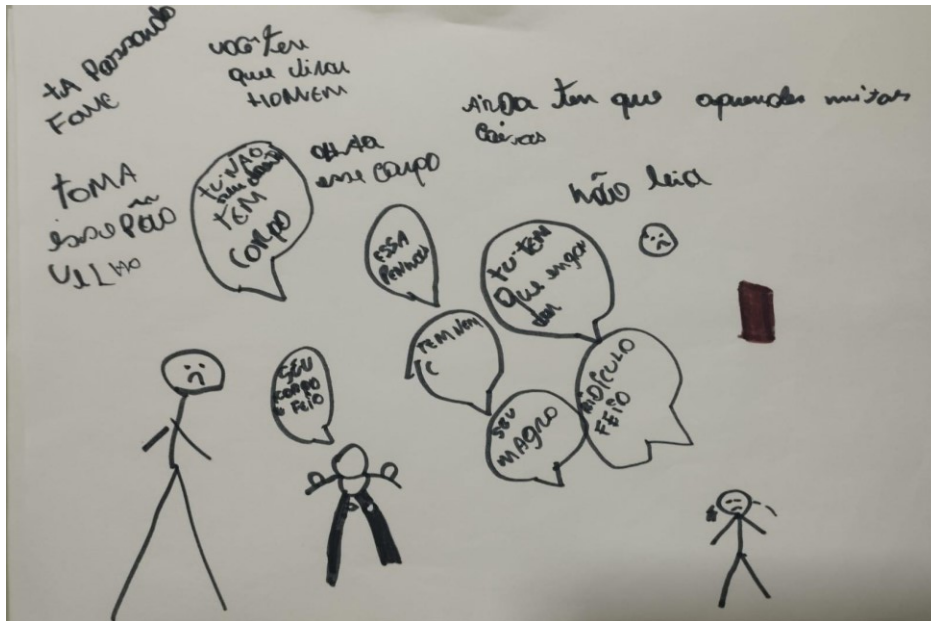 TA Passando
FOME
você tem
que virar
HOMEM
AiNDa tem que aprender muitas
Coisas
TOMA
esse Pão
VELHO
TU NÃO
TEM
CORPO
OLHA
esse CORPO
não leia
ESSA
TU TEM
que engor
dar
TEM Nem
SEU
CORPO
É FEIO
SEU
MAGRO
RIDÍCULO
FEIO